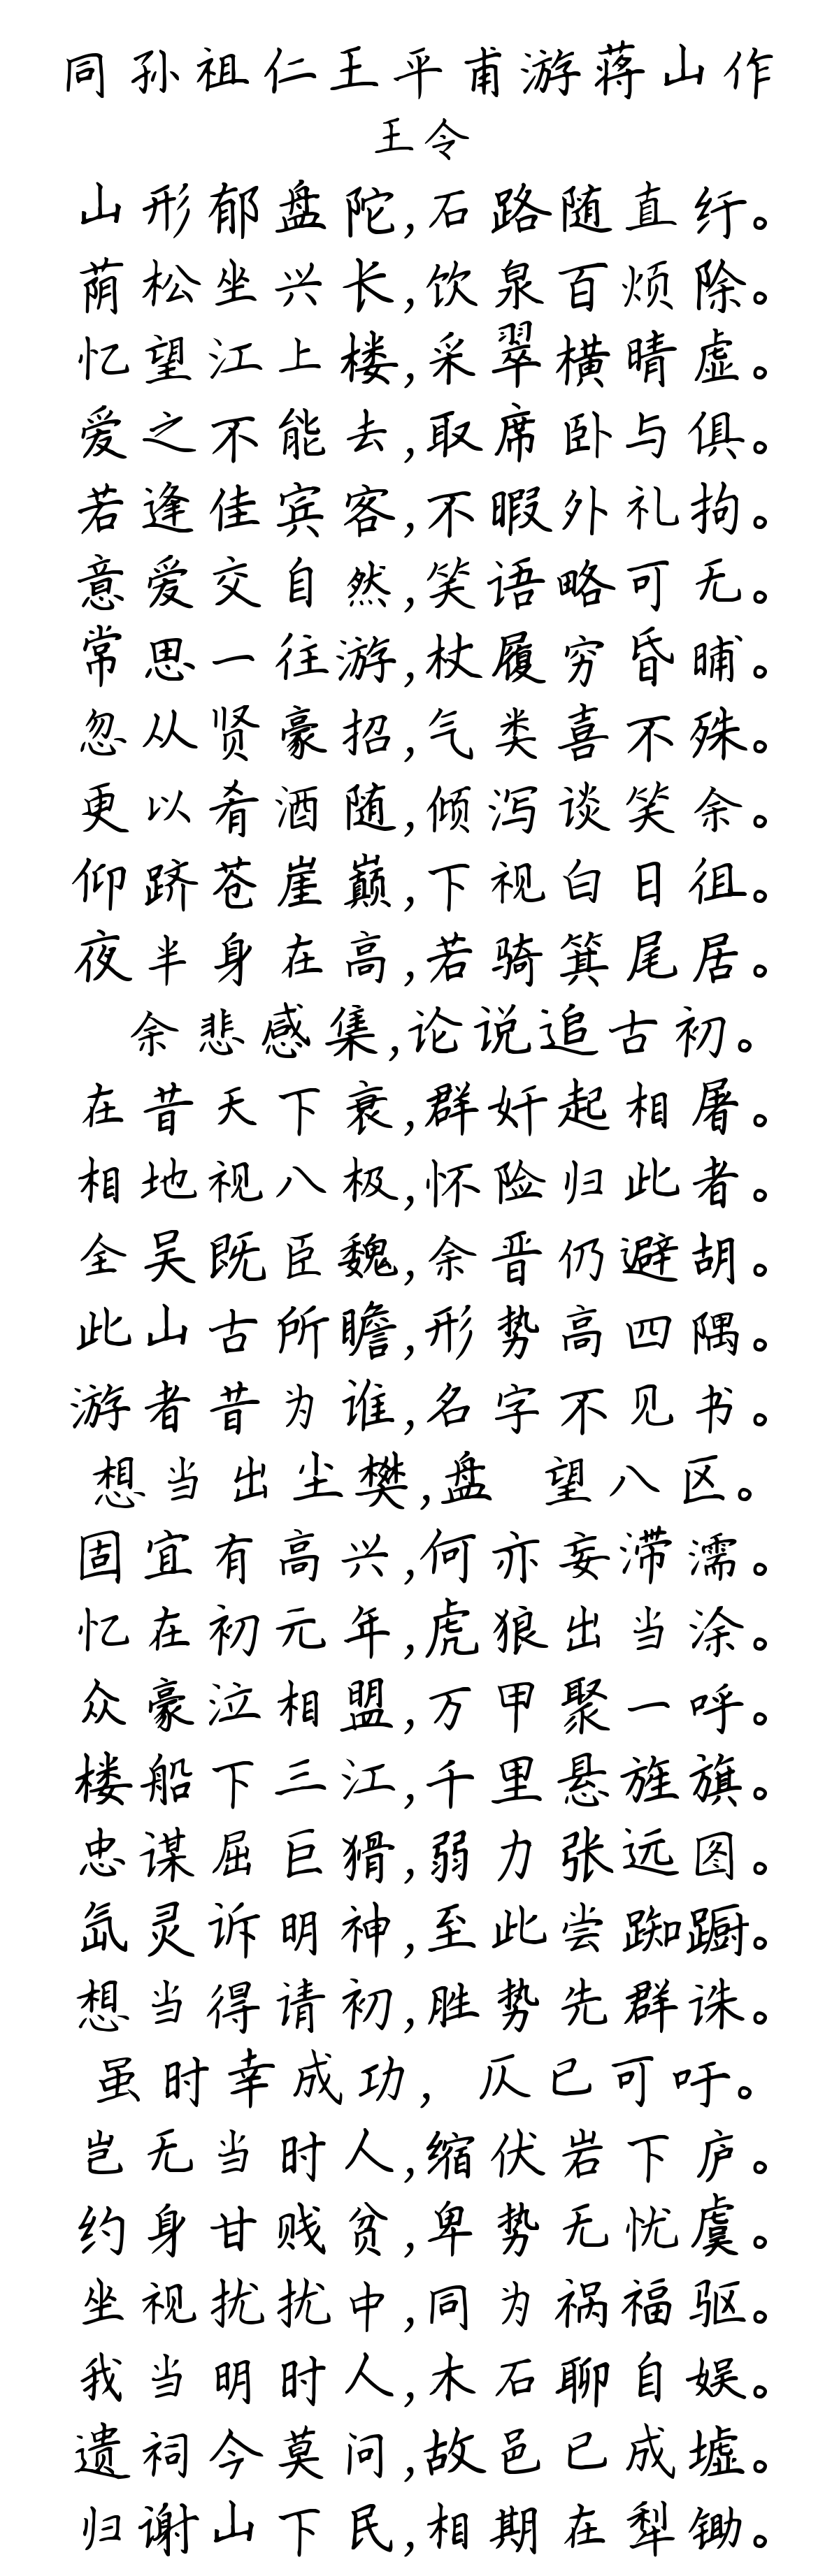 同孙祖仁王平甫游蒋山作
王令
山形郁盘陀,石路随直纡。
荫松坐兴长,饮泉百烦除。
忆望江上楼,采翠横晴虚。
爱之不能去,取席卧与俱。
若逢佳宾客,不暇外礼拘。
意爱交自然,笑语略可无。
常思一往游,杖履穷昏晡。
忽从贤豪招,气类喜不殊。
更以肴酒随,倾泻谈笑余。
仰跻苍崖巅,下视白日徂。
夜半身在高,若骑箕尾居。
余悲感集,论说追古初。
在昔天下衰,群奸起相屠。
相地视八极,怀险归此者。
全吴既臣魏,余晋仍避胡。
此山古所瞻,形势高四隅。
游者昔为谁,名字不见书。
想当出尘樊,盘 望八区。
固宜有高兴,何亦妄滞濡。
忆在初元年,虎狼出当涂。
众豪泣相盟,万甲聚一呼。
楼船下三江,千里悬旌旗。
忠谋屈巨猾,弱力张远图。
氙灵诉明神,至此尝踟蹰。
想当得请初,胜势先群诛。
虽时幸成功, 仄已可吁。
岂无当时人,缩伏岩下庐。
约身甘贱贫,卑势无忧虞。
坐视扰扰中,同为祸福驱。
我当明时人,木石聊自娱。
遗祠今莫问,故邑已成墟。
归谢山下民,相期在犁锄。